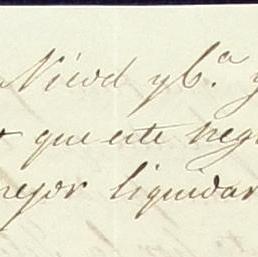 Nieod yCª. y
que este neg
mejor liquidar